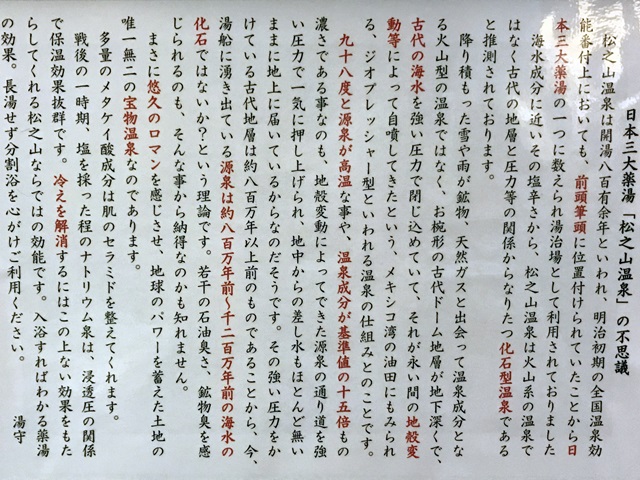 日本三大薬湯「松之山温泉」の不思議
松之山温泉は開湯八百有余年といわれ、明治初期の全国温泉効
能番付上においても、前頭筆頭に位置付けられていたことから日
本三大薬湯の一つに数えられ湯治場として利用されておりました
海水成分に近いその塩辛さから、松之山温泉は火山系の温泉で
はなく古代の地層と圧力等の関係からなりたつ化石型温泉である
と推測されております。
降り積もった雪や雨が鉱物、天然ガスと出会って温泉成分とな
る火山型の温泉ではなく、お椀形の古代ドーム地層が地下深くで、
古代の海水を強い圧力で閉じ込めていて、それが永い間の地殻変
動等によって自噴してきたという、メキシコ湾の油田にもみられ
る、ジオプレッシャー型といわれる温泉の仕組みとのことです。
九十八度と源泉が高温な事や、温泉成分が基準値の十五倍もの
濃さである事なのも、地殻変動によってできた源泉の通り道を強
い圧力で一気に押し上げられ、地中からの差し水もほとんど無い
ままに地上に届いているからなのだそうです。その強い圧力をか
けている古代地層は約八百万年以上前のものであることから、今、
湯船に湧き出ている源泉は約八百万年前～千二百万年前の海水の
化石ではないか？という理論です。若干の石油臭さ、鉱物臭を感
じられるのも、そんな事から納得なのかも知れません。
まさに悠久のロマンを感じさせ、地球のパワーを蓄えた土地の
唯一無二の宝物温泉なのであります。
多量のメタケイ酸成分は肌のセラミドを整えてくれます。
戦後の一時期、塩を採った程のナトリウム泉は、浸透圧の関係
で保温効果抜群です。冷えを解消するにはこの上ない効果をもた
らしてくれる松之山ならではの効能です。入浴すればわかる薬湯
の効果。長湯せず分割浴を心がけご利用ください。
湯守